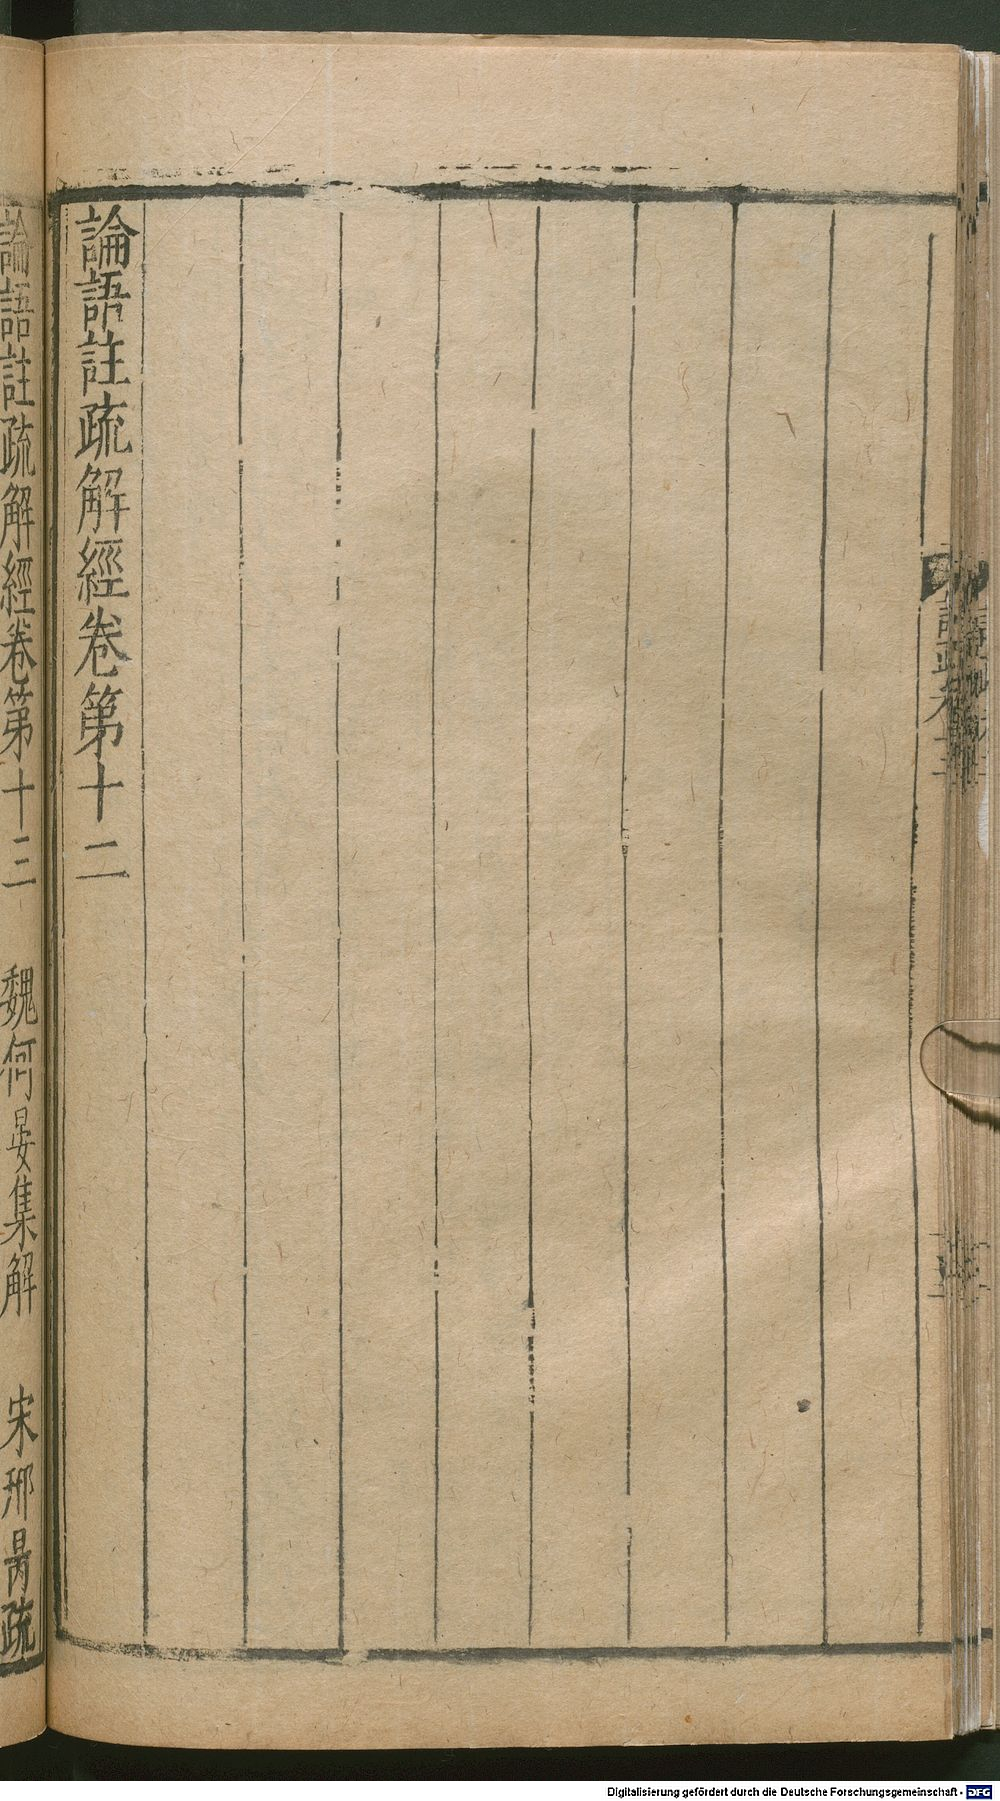 論語註疏解經卷第十二
論語註疏解經卷第十三　魏何晏集解　宋邢昺疏
Digitalisierung gefördert durch die Deutsche Forschungsgemeinschaft - DFG